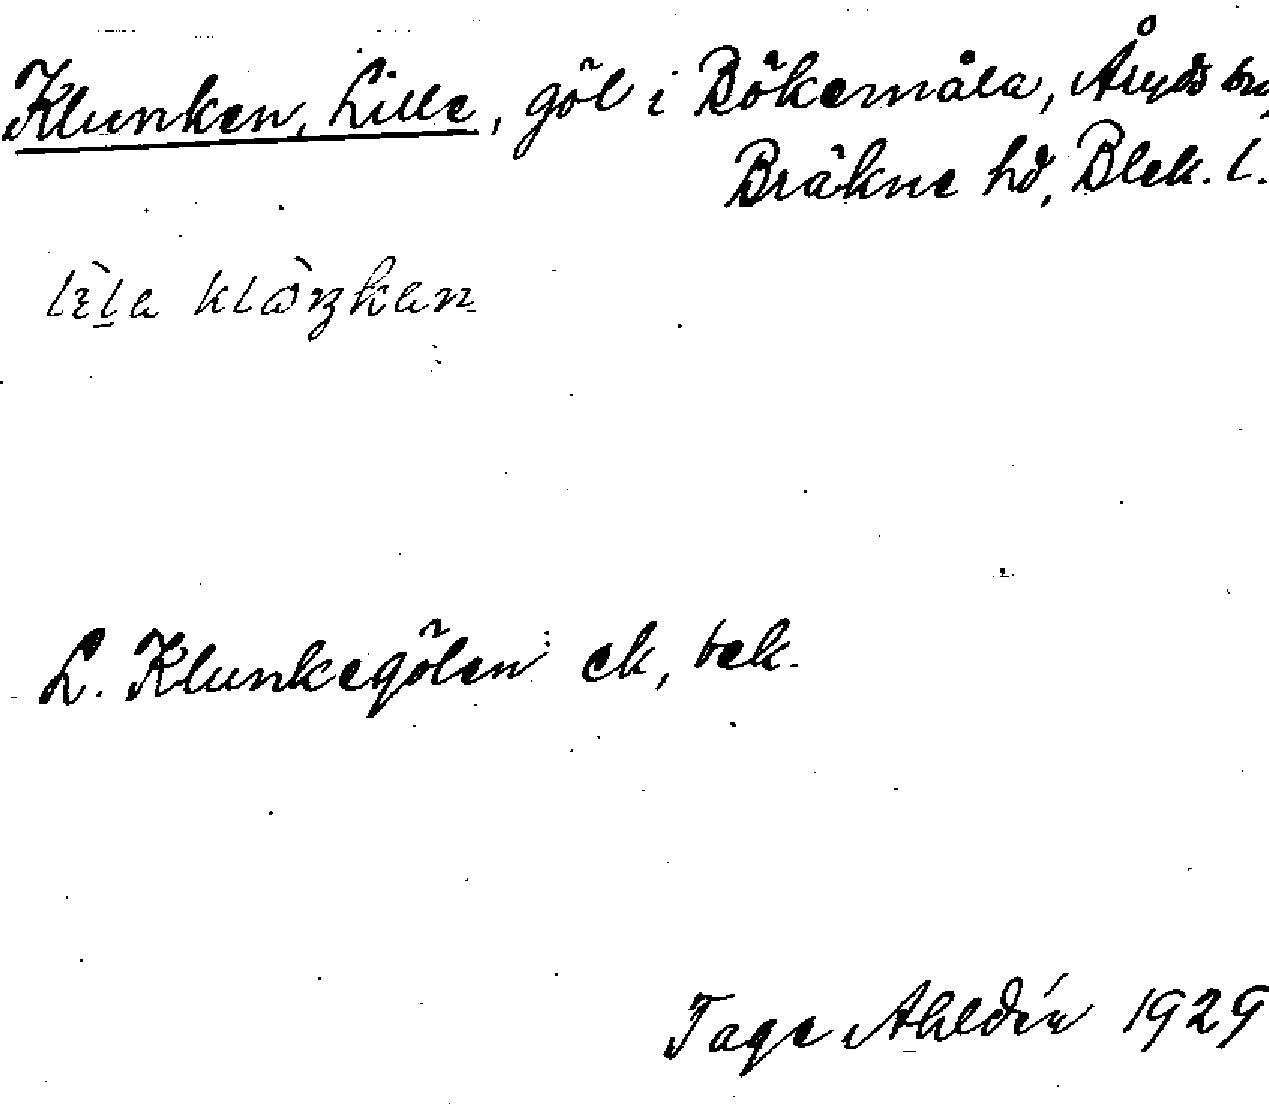 Klunken, Lille, göl i Bökemåla, Åryds sn,
Bräkne hd, Blek. l.
L. Klunkegölen: ek, tek.
Tage Ahldén 1929